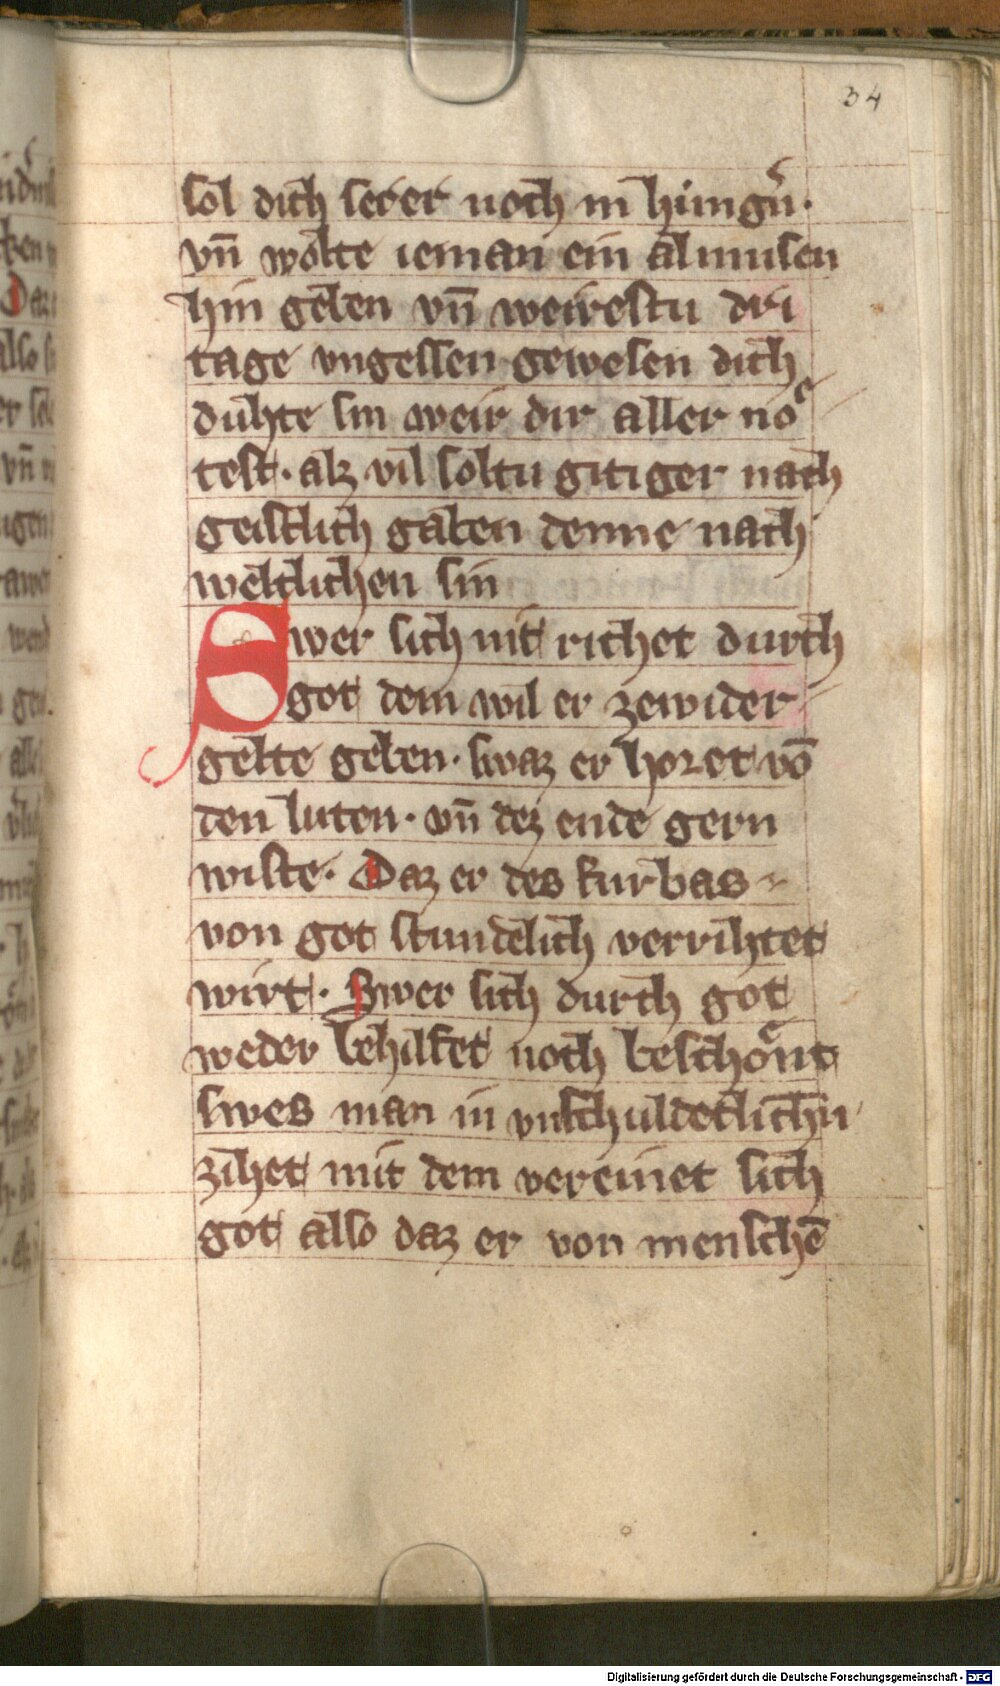 34
sol dich serer noch in himgẽn·
vn̄ wolte ieman ein almusen
hin geben vn̄ weirestu dri
tage vngessen gewesen dich
duhte sin weir dir aller noͤ
test· alz vil soltu gitiger nach
geistlich gaben denne nach
weltlichen sin
Swer sich nit richet durch
got dem wil er zewider
gelte geben· swaz er horet võ
den luten· vn̄ dez ende gern
wiste· Daz er des furbas
von got stundelich verrihtet
wirt· Swer sich durch got
weder behilfet noch beschoͤnt
swes man in vnschuldeclichn̄
zihet mit dem vereinet sich
got also daz er von menschē
Digitalisierung gefördert durch die Deutsche Forschungsgemeinschaft - DFG